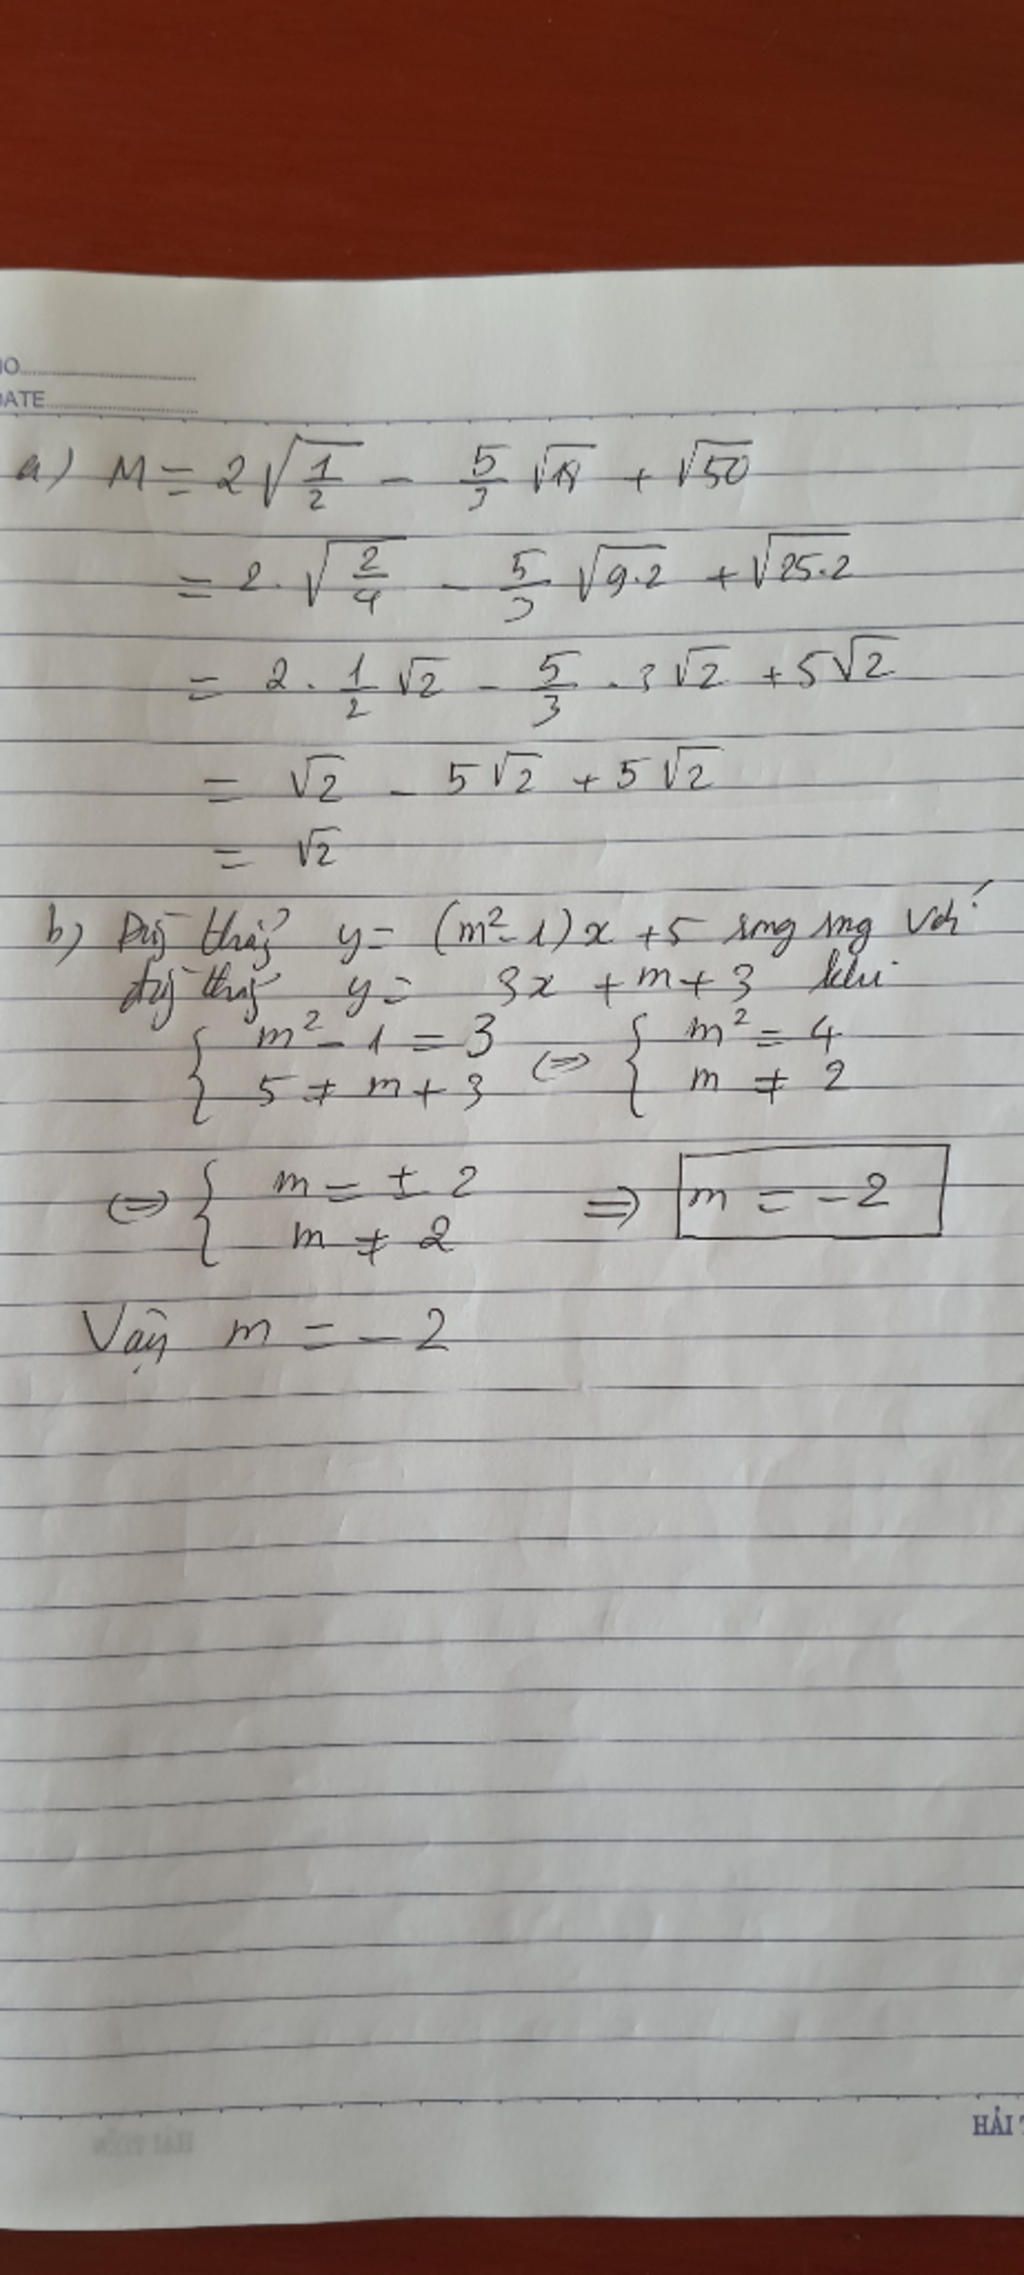 NO
DATE
a) M = 2√(1/2) - 5/3 √18 + √50
= 2.√(2/4) - 5/3 √(9.2) + √(25.2)
= 2.1/2 √2 - 5/3 .3√2 + 5√2
= √2 - 5√2 + 5√2
= √2
b) Đường thẳng y = (m²-1)x + 5 song song với
đường thẳng y = 3x + m + 3 khi
{ m² - 1 = 3 <=> { m² = 4
5 ≠ m + 3 m ≠ 2
<=> { m = ± 2 => m = -2
m ≠ 2
Vậy m = -2
HẢI